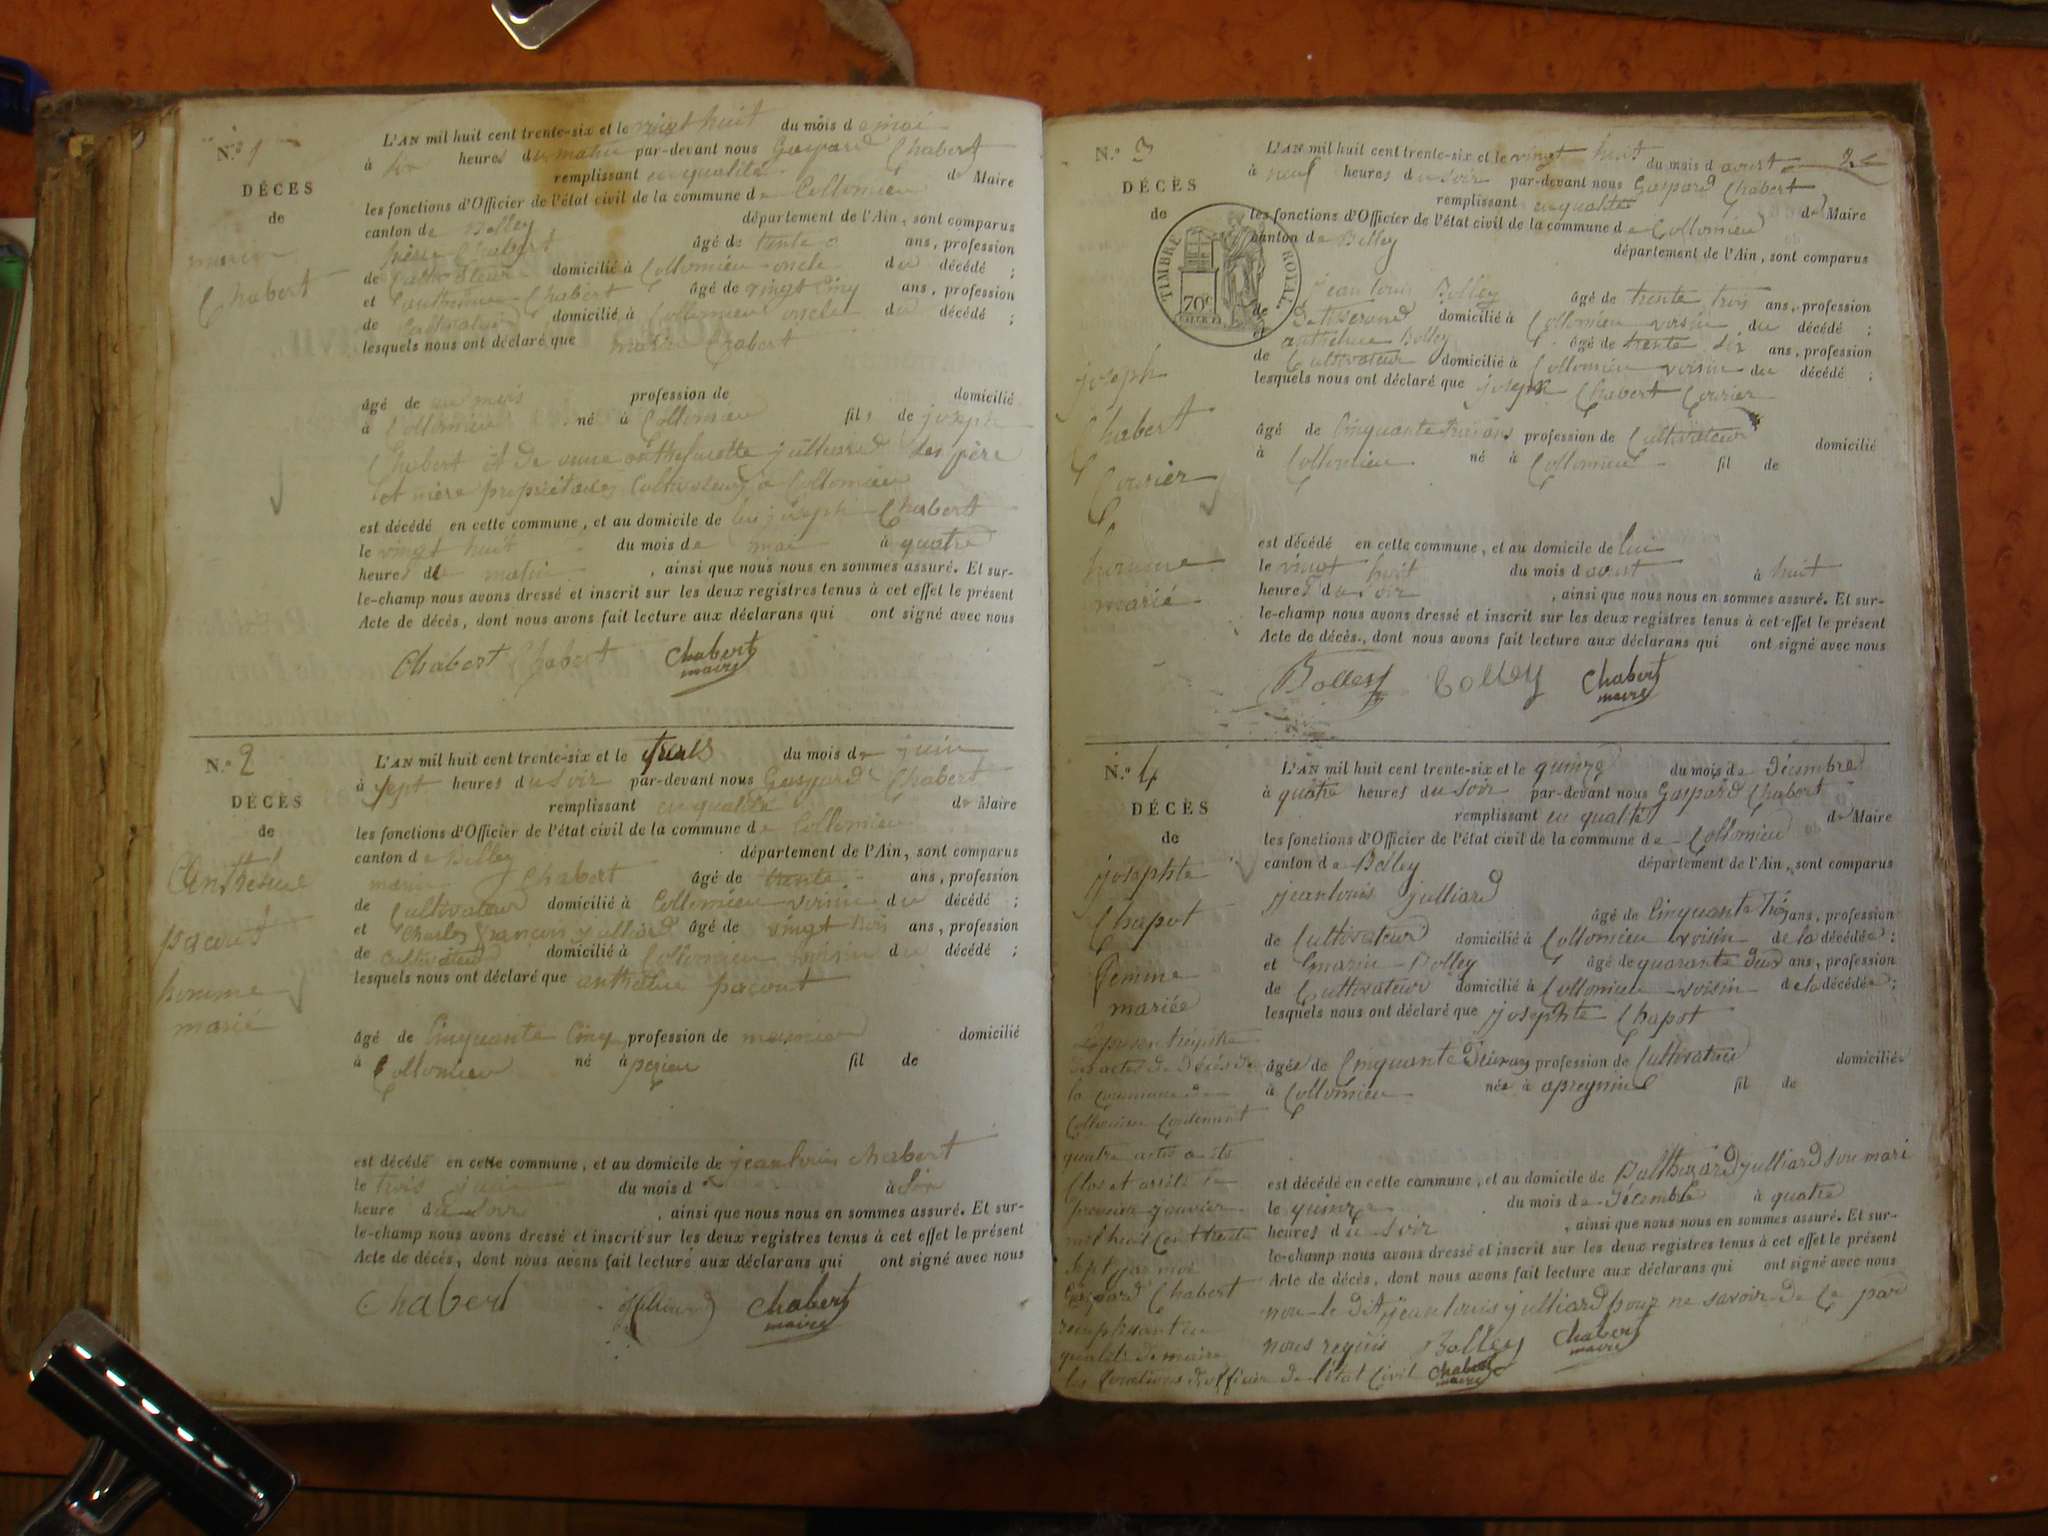 N.° 1
DÉCES
de
marin
Chabert
L'AN mil huit cent trente-six et le vingt huit du mois de mai
à six heures du matin par-devant nous Gaspard Chabert
remplissant en qualité de Maire
les fonctions d'Officier de l'état civil de la commune de Collomieu
canton de Belley département de l'Ain, sont comparus
pierre Chabert âgé de trente ans, profession
de Cultivateur domicilié à Collomieu oncle du décédé ;
et anthelme Chabert âgé de vingt cinq ans, profession
de Cultivateur domicilié à Collomieu oncle du décédé ;
lesquels nous ont déclaré que marin Chabert
âgé de un mois profession de domicilié
à Collomieu né à Collomieu fils de joseph
Chabert et de anne anthelmette julliard ses père
et mère propriétaires Cultivateurs à Collomieu
est décédé en cette commune, et au domicile de lui joseph Chabert
le vingt huit du mois de mai à quatre
heures de matin, ainsi que nous nous en sommes assuré. Et sur-
le-champ nous avons dressé et inscrit sur les deux registres tenus à cet effet le présent
Acte de décès, dont nous avons fait lecture aux déclarans qui ont signé avec nous
Chabert Chabert Chabert
maire
N.° 2
DÉCÈS
de
Anthelme
pacout
homme
marié
L'AN mil huit cent trente-six et le trois du mois de juin
à sept heures du soir par-devant nous Gaspard Chabert
remplissant en qualité de Maire
les fonctions d'Officier de l'état civil de la commune de Collomieu
canton de Belley département de l'Ain, sont comparus
marin Chabert âgé de trente ans, profession
de Cultivateur domicilié à Collomieu voisin du décédé ;
et Charles françois julliard âgé de vingt trois ans, profession
de Cultivateur domicilié à Collomieu voisin du décédé ;
lesquels nous ont déclaré que anthelme pacout
âgé de Cinquante Cinq profession de meunier domicilié
à Collomieu né à pezieu fil de
est décédé en cette commune, et au domicile de jean louis Chabert
le trois juin du mois d à six
heure du soir, ainsi que nous nous en sommes assuré. Et sur-
le-champ nous avons dressé et inscrit sur les deux registres tenus à cet effet le présent
Acte de décès, dont nous avons fait lecture aux déclarans qui ont signé avec nous
Chabert julliard Chabert
maire
N.° 3
DÉCÈS
de
TIMBRE ROYAL
70c
joseph
Chabert
Couvier
homme
marié
L'AN mil huit cent trente-six et le vingt huit du mois d aoust
à neuf heures du soir par-devant nous Gaspard Chabert
remplissant en qualité de Maire
les fonctions d'Officier de l'état civil de la commune de Collomieu
canton de Belley département de l'Ain, sont comparus
jean louis Bolley âgé de trente trois ans, profession
de tisserand domicilié à Collomieu voisin du décédé ;
et anthelme Bolley âgé de trente six ans, profession
de Cultivateur domicilié à Collomieu voisin du décédé ;
lesquels nous ont déclaré que joseph Chabert Couvier
âgé de Cinquante trois ans profession de Cultivateur domicilié
à Collomieu né à Collomieu fil de
est décédé en cette commune, et au domicile de lui
le vingt huit du mois d aoust à huit
heures du soir, ainsi que nous nous en sommes assuré. Et sur-
le-champ nous avons dressé et inscrit sur les deux registres tenus à cet effet le présent
Acte de décès, dont nous avons fait lecture aux déclarans qui ont signé avec nous
Bolley Bolley Chabert
maire
N.° 4
DÉCÈS
de
josephte
Chapot
femme
mariée
L'AN mil huit cent trente-six et le quinze du mois de Décembre
à quatre heures du soir par-devant nous Gaspard Chabert
remplissant en qualité de Maire
les fonctions d'Officier de l'état civil de la commune de Collomieu
canton de Belley département de l'Ain, sont comparus
jean louis julliard
âgé de Cinquante trois ans, profession
de Cultivateur domicilié à Collomieu voisin de la décédée ;
et marin Bolley âgé de quarante deux ans, profession
de Cultivateur domicilié à Collomieu voisin de la décédée ;
lesquels nous ont déclaré que josephte Chapot
âgée de Cinquante profession de Cultivateur domiciliée
à Collomieu née à apregnin fil de
est décédé en cette commune, et au domicile de Balthazard julliard son mari
le quinze du mois de Décembre à quatre
heures du soir, ainsi que nous nous en sommes assuré. Et sur-
le-champ nous avons dressé et inscrit sur les deux registres tenus à cet effet le présent
Acte de décès, dont nous avons fait lecture aux déclarans qui ont signé avec nous
non le dit jean louis julliard pour ne savoir de ce par
nous requis Bolley Chabert
maire
Le présent registre
des actes de Décès de
la Commune de
Collomieu Contenant
quatre actes a été
Clos et arrêté le
premier janvier
mil huit cent trente
sept par moi
Gaspard Chabert
remplissant en
qualité de maire
les fonctions d'officier de l'état Civil Chabert
maire